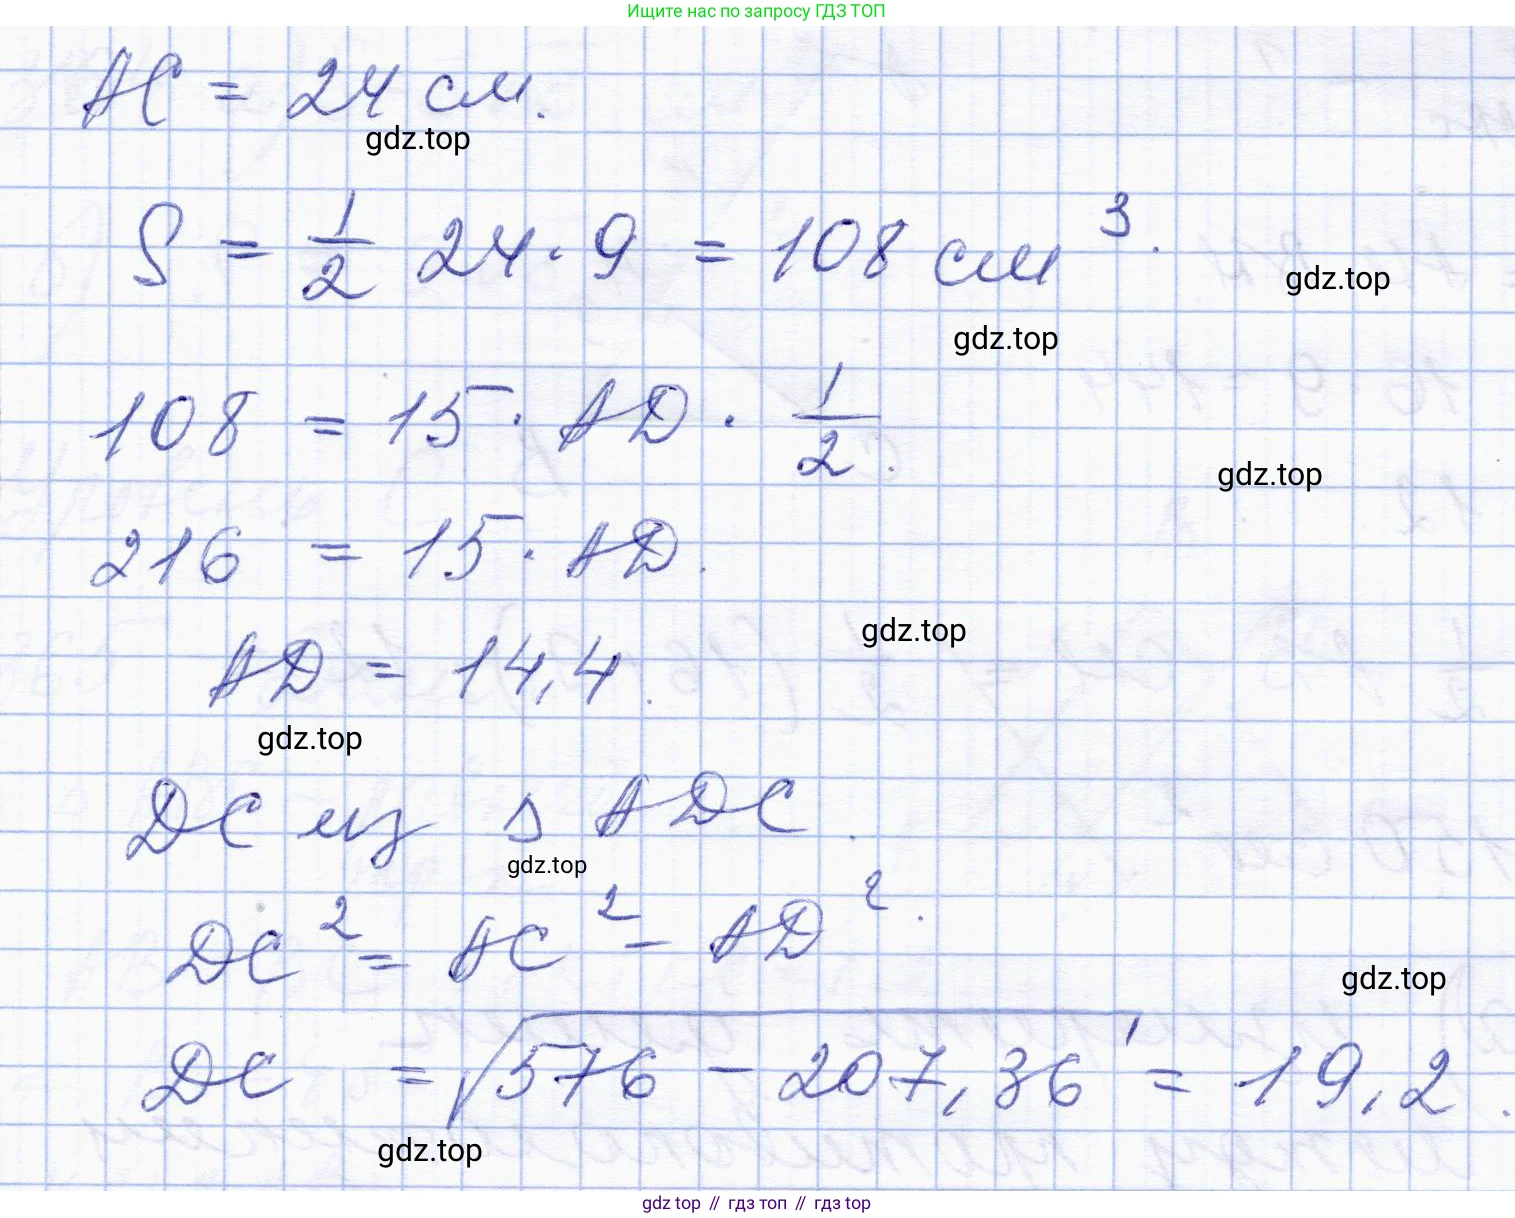 Ищите нас по запросу ГДЗ ТОП
AC = 24 см.
gdz.top
S = 1/2 24 · 9 = 108 см³.
gdz.top
gdz.top
108 = 15 · AD · 1/2.
gdz.top
216 = 15 · AD.
gdz.top
AD = 14,4.
gdz.top
DC из Δ ADC.
gdz.top
DC² = AC² - AD².
gdz.top
DC = √576 - 207,36 = 19,2.
gdz.top
gdz top // гдз топ // гдз top